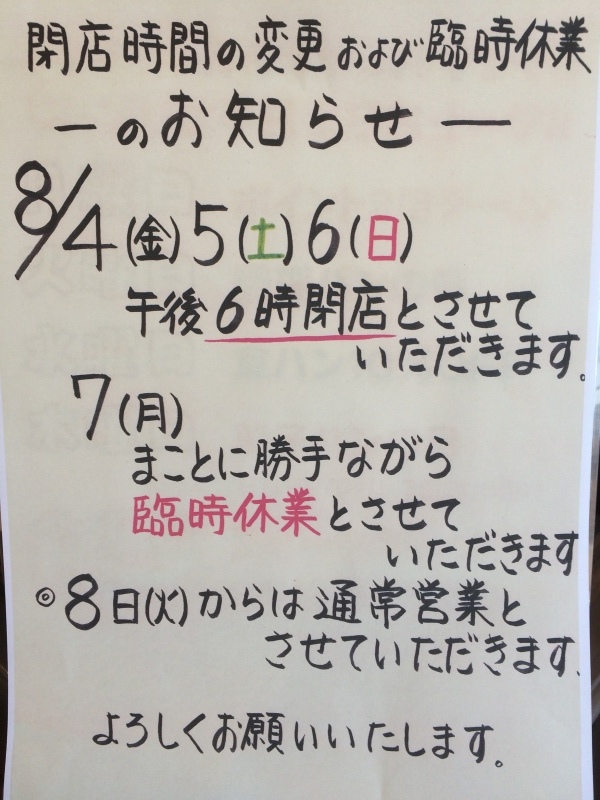 閉店時間の変更および臨時休業
ーのお知らせー
8/4(金)5(土)6(日)
午後6時閉店とさせて
いただきます。
7(月)
まことに勝手ながら
臨時休業とさせて
いただきます
◎8日(火)からは通常営業と
させていただきます.
よろしくお願いいたします。